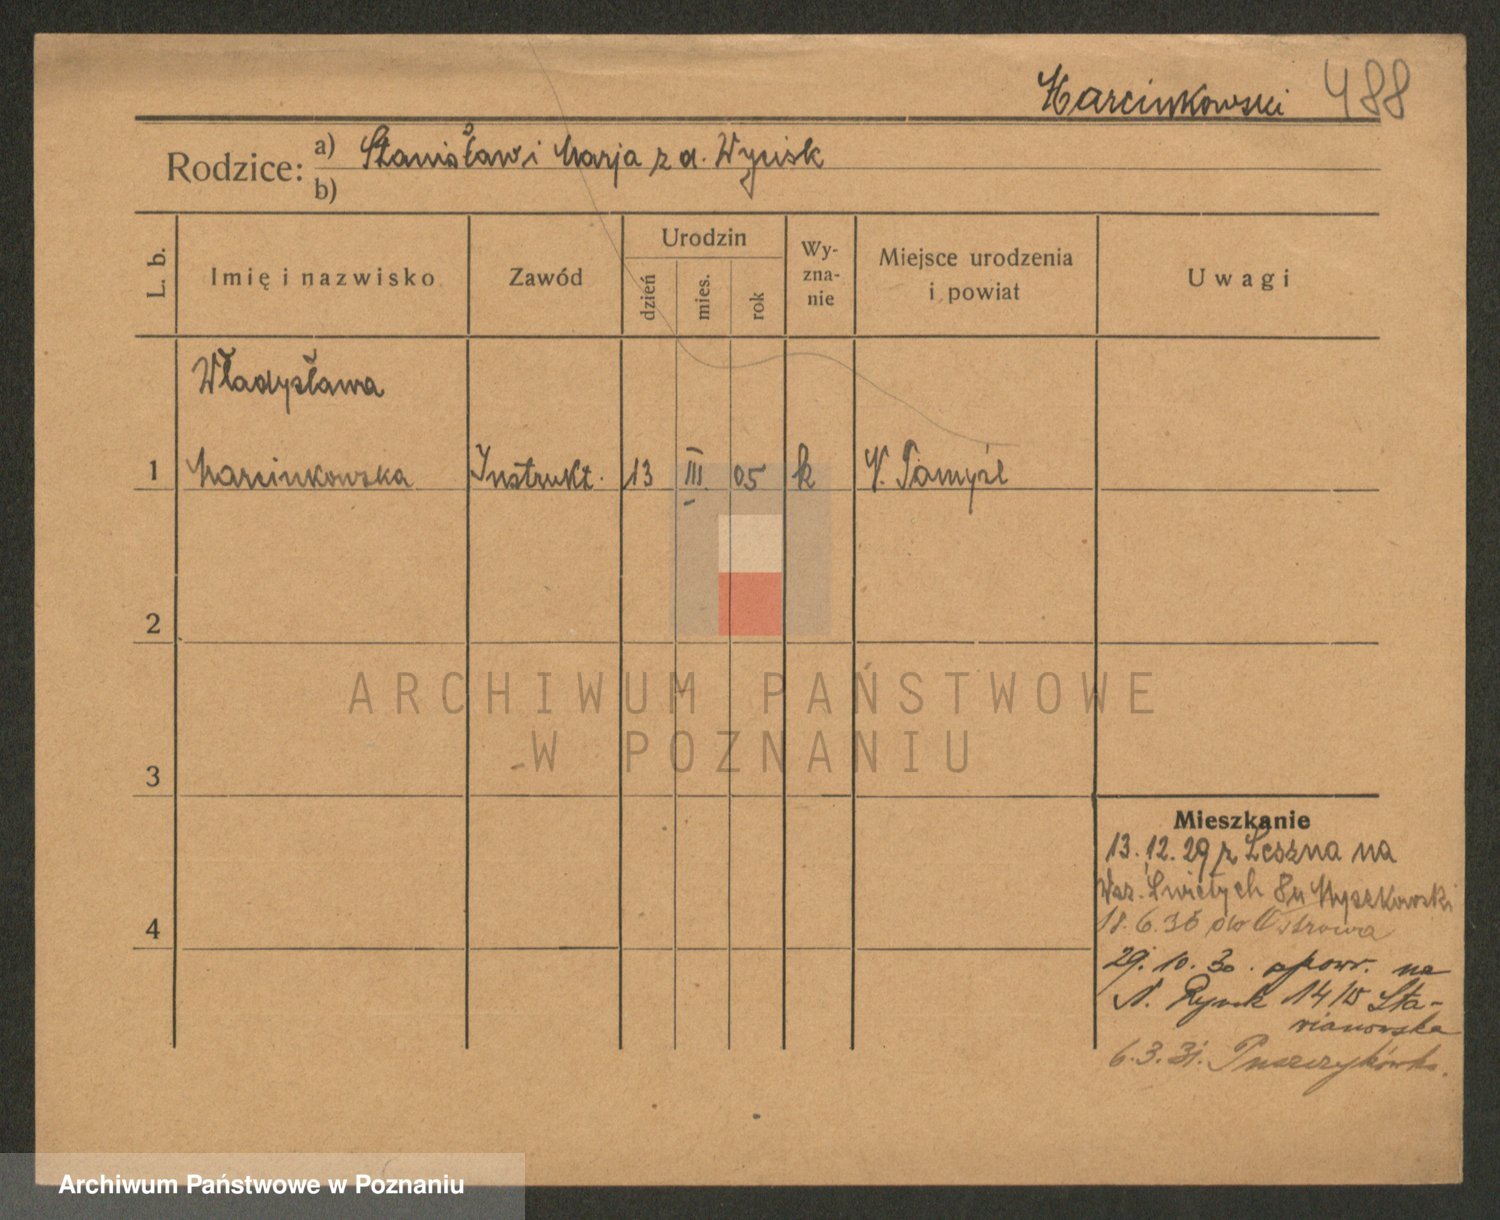 Marcinkowski 488
Rodzice: a) Stanisław i Marja z d. Wycisk
b)
L. b. Imię i nazwisko Zawód Urodzin dzień mies. rok Wy-zna-nie Miejsce urodzenia i powiat Uwagi
Władysława
1 Marcinkowska Instrukt. 13 III 05 k N. Tomyśl
2
3
4
Mieszkanie
13.12.29 z Leszna na
Wsz. Świętych 8 u Myszkowski
18.6.30 do Ostrowa
29.10.30. powr. na
N. Rynek 14/III Sta-
rianowska
6.3.31. Puszczykówko.
ARCHIWUM PAŃSTWOWE
W POZNANIU
Archiwum Państwowe w Poznaniu